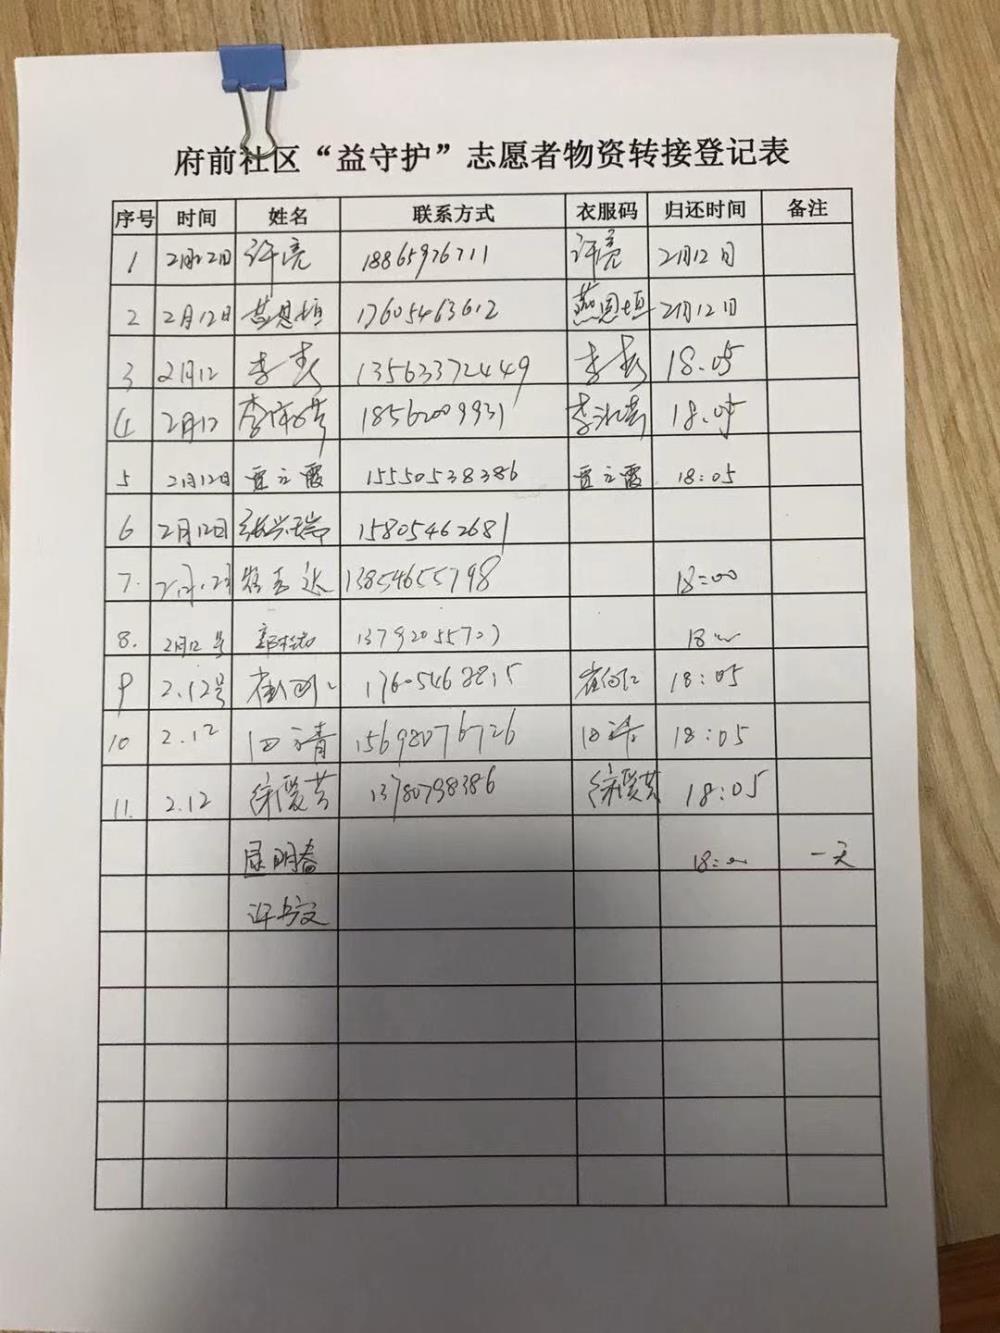 府前社区“益守护”志愿者物资转接登记表
序号 时间 姓名 联系方式 衣服码 归还时间 备注
1 2月12日 许亮 18865976711 许亮 2月12日
2 2月12日 燕恩垣 17605463612 燕恩垣 2月12日
3 2月12 李秀 13563372449 李秀 18.05
4 2月12 18562009931 18.05
5 2月12日 贾立霞 15550538386 贾立霞 18:05
6 2月12日 张兴瑞 15805462681
7. 13854655798 18:00
8. 2月12号 13792055703 18
9 2.12号 18:05
10 2.12 田清 15698076726 田清 18:05
11. 2.12 徐爱芸 13780798386 徐爱芸 18:05
明春 18: 一天
许